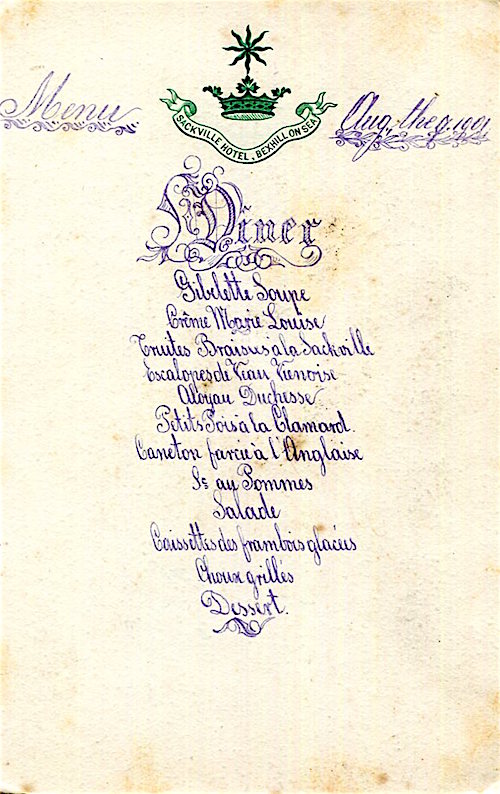 Menu
SACKVILLE HOTEL, BEXHILL ON SEA
Aug. the 9. 1901
Dîner
Gibelette Soupe
Crême Marie Louise
Truites Braisus à la Sackville
Escalopes de Veau Vienoise
Aloyau Duchesse
Petits Pois à la Clamard.
Caneton farcie à l'Anglaise
Ss au Pommes
Salade
Caissettes des frambois glacées
Choux grillés
Dessert.